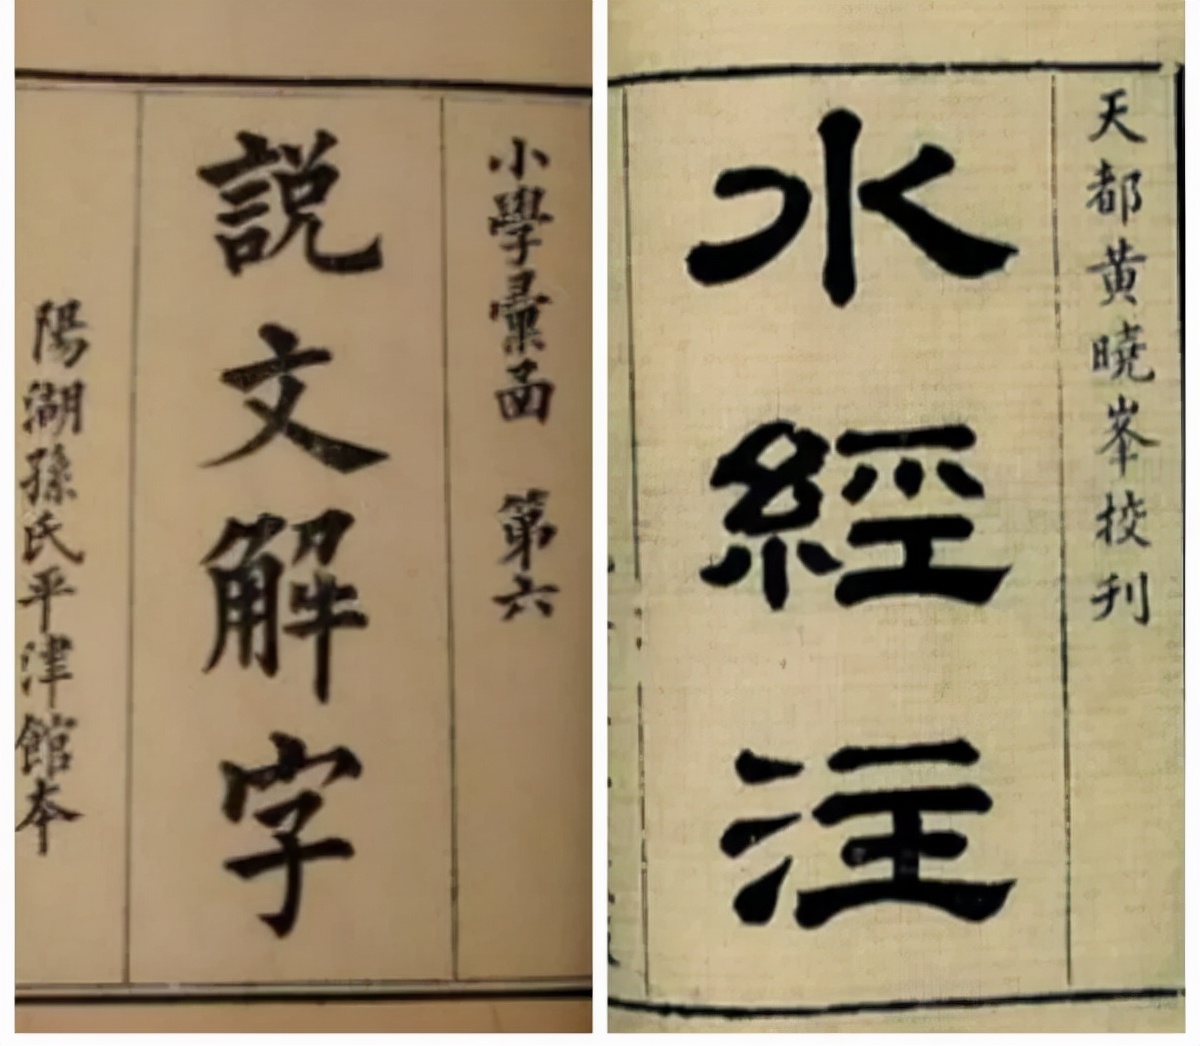 小學彙函 第六
説文解字
陽湖孫氏平津館本
天都黄曉峯校刊
水經注